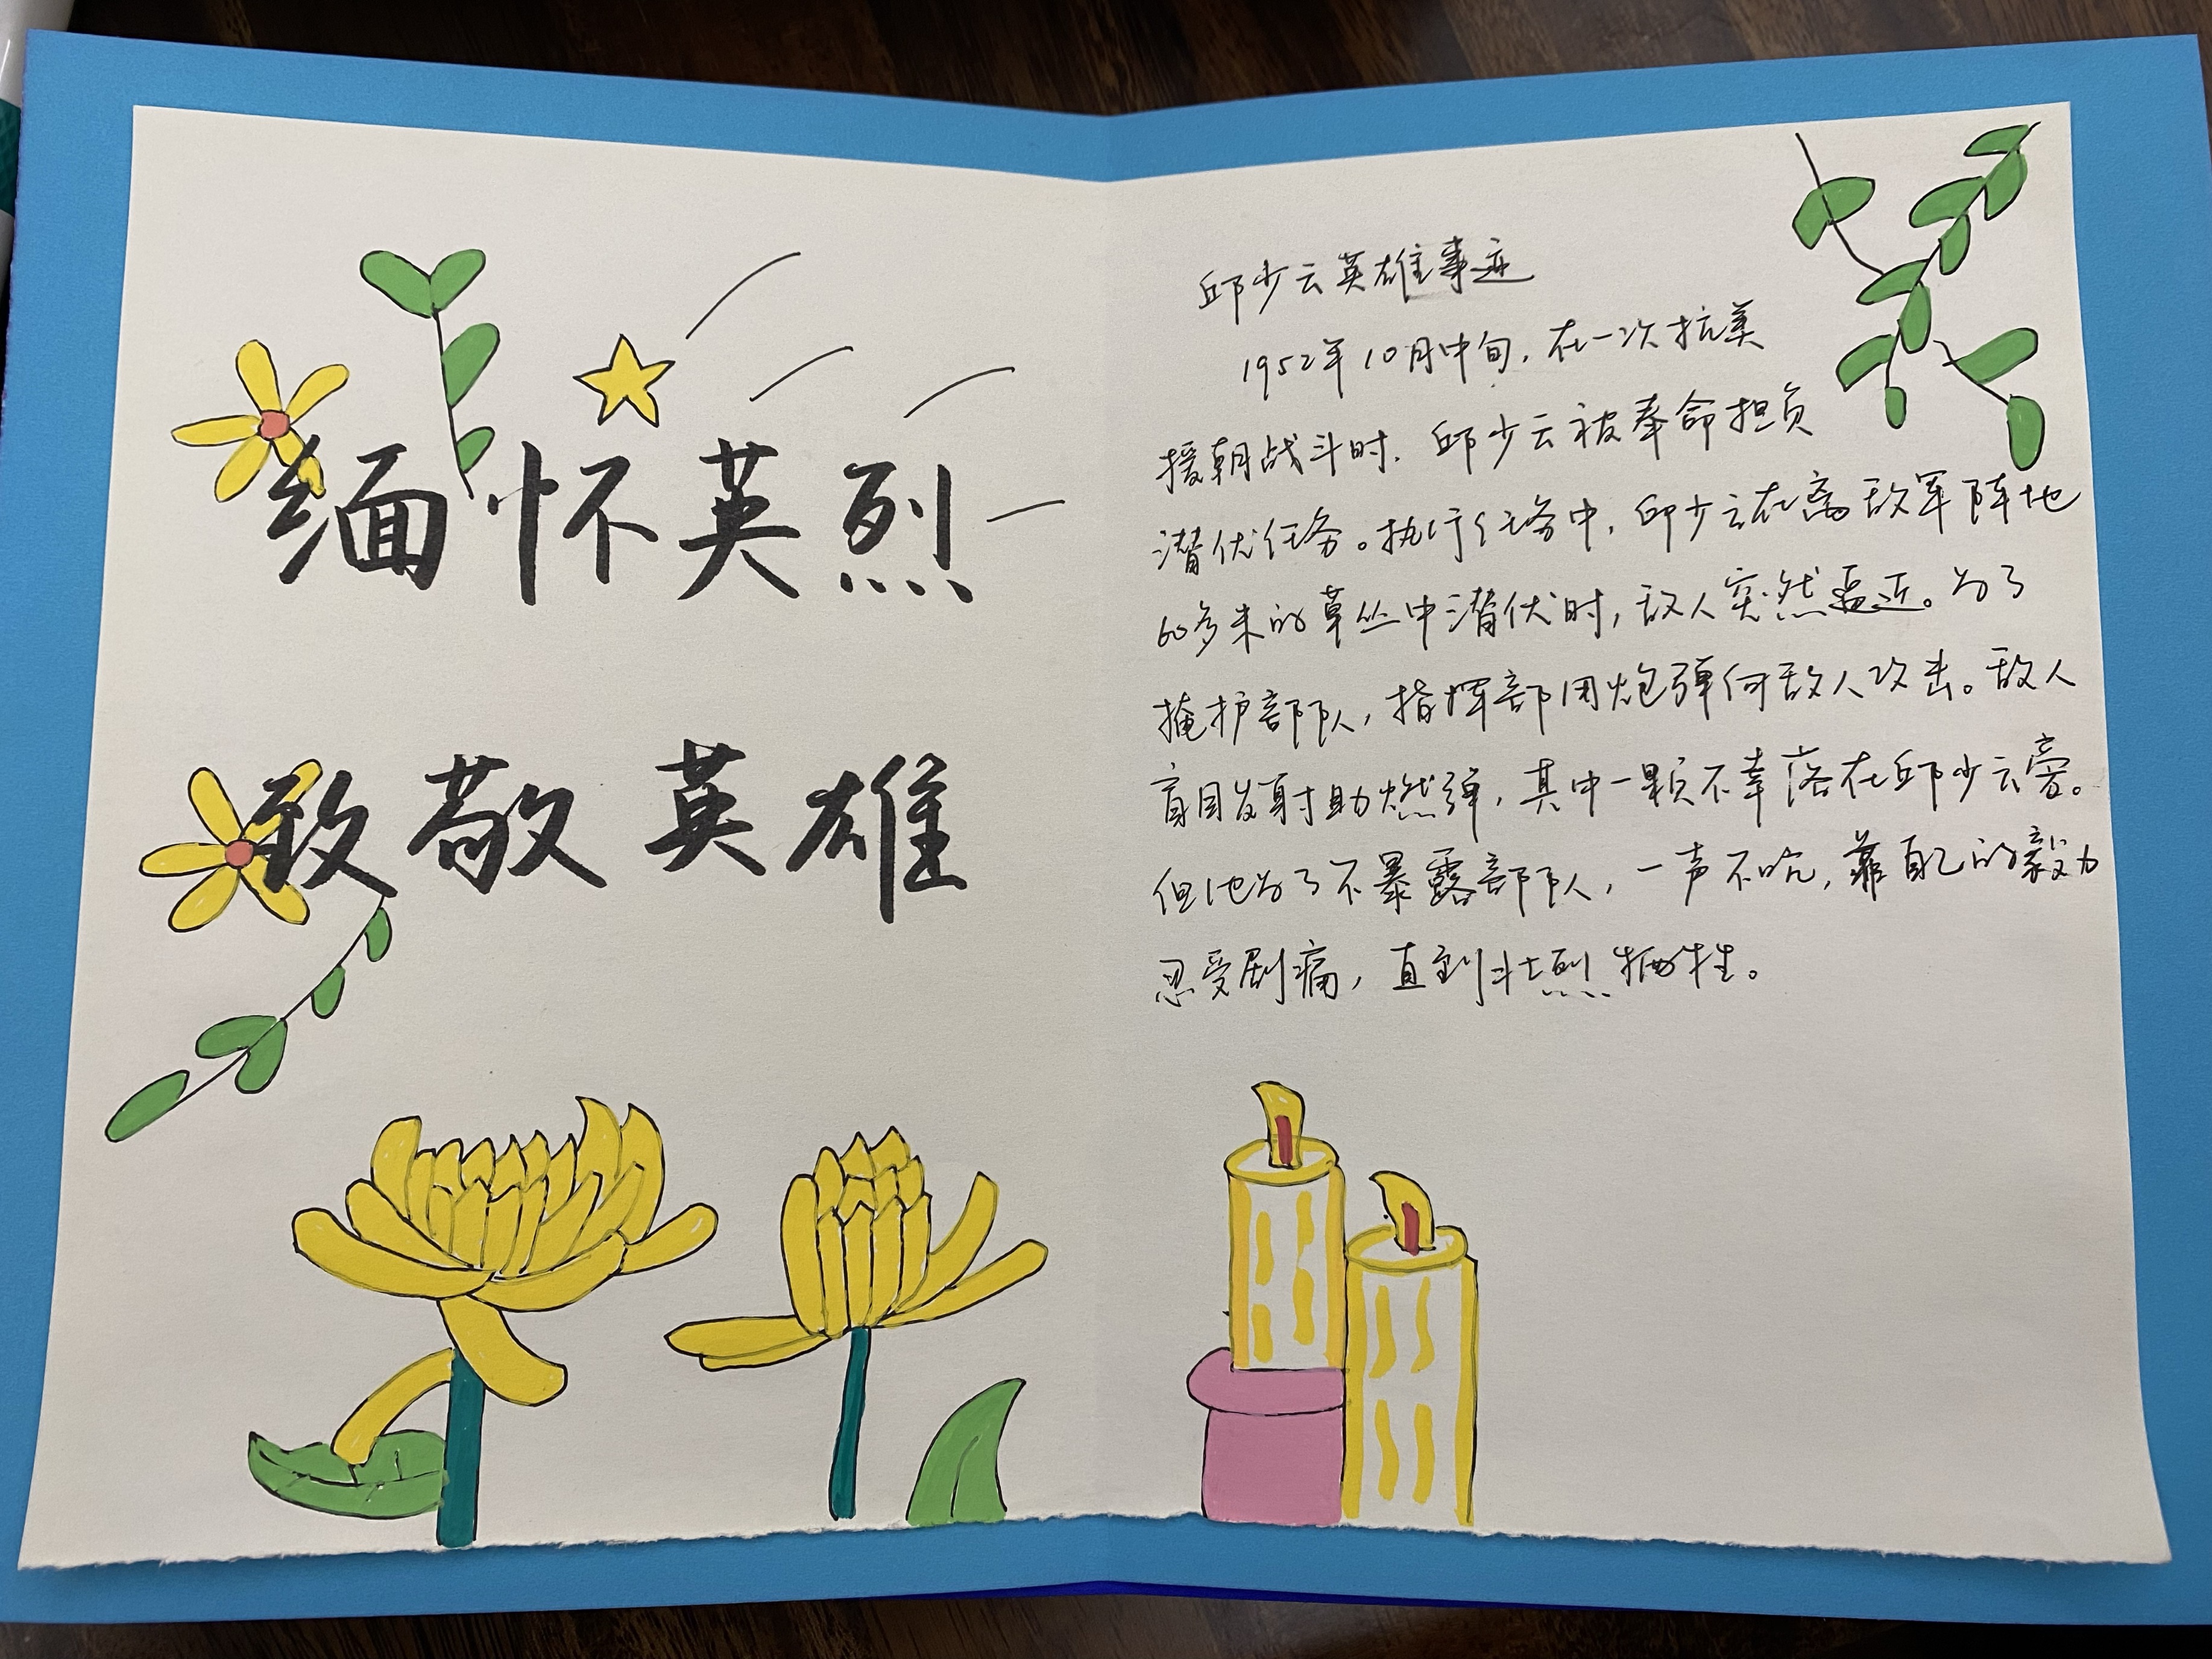 缅怀英烈
致敬英雄
邱少云英雄事迹
1952年10月中旬，在一次抗美
援朝战斗时，邱少云被奉命担负
潜伏任务。执行任务中，邱少云在离敌军阵地
60多米的草丛中潜伏时，敌人突然逼近。为了
掩护部队，指挥部用炮弹向敌人攻击。敌人
盲目发射助燃弹，其中一颗不幸落在邱少云旁。
但他为了不暴露部队，一声不吭，靠自己的毅力
忍受剧痛，直到壮烈牺牲。